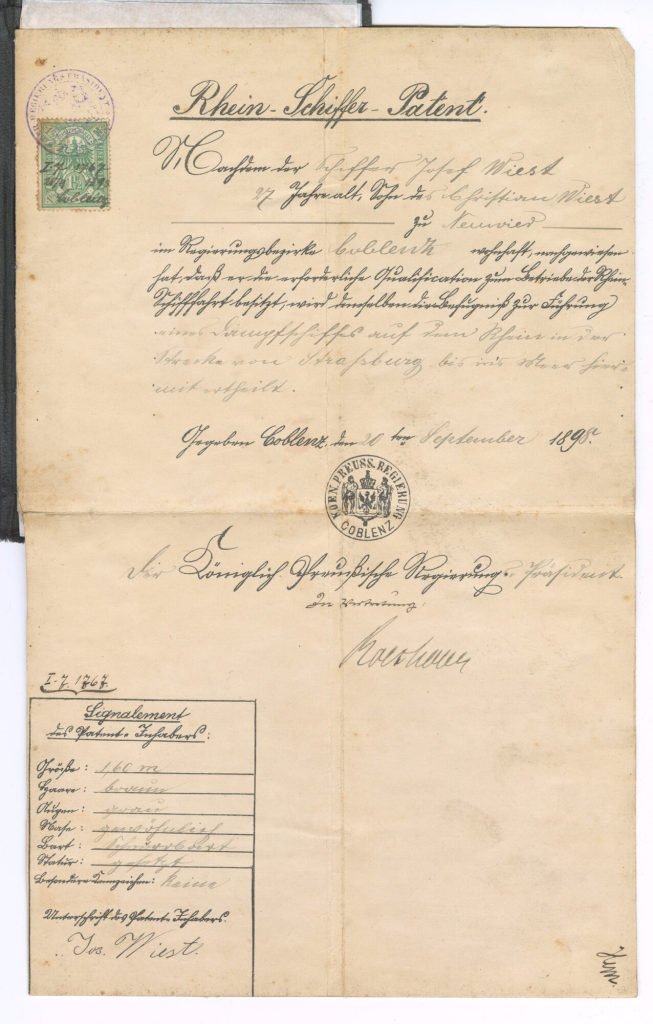 Rhein-Schiffer-Patent.
Nachdem der Schiffer Josef Wiest
27 Jahre alt, Sohn des Christian Wiest
zu Neuwied
im Regierungsbezirke Coblenz wohnhaft, nachgewiesen
hat, daß er die erforderliche Qualification zum Betriebe der Rhein-
Schifffahrt besitzt, wird demselben die Befugniß zur Führung
eines Dampfschiffes auf dem Rhein in der
Strecke von Straßburg bis in's Meer hier-
mit ertheilt.
Gegeben Coblenz, den 20 ten September 1898.
KOEN. PREUSS. REGIERUNG
COBLENZ
Der Königlich Preußische Regierungs-Präsident.
In Vertretung:
I-7. 1767.
Signalement
des Patent-Inhabers:
Größe: 1,60 m
Haare: braun
Augen: grau
Nase: gewöhnlich
Bart: Schnurrbart
Statur: gesetzt
Besondere Kennzeichen: keine
Unterschrift des Patent-Inhabers.
Jos. Wiest.